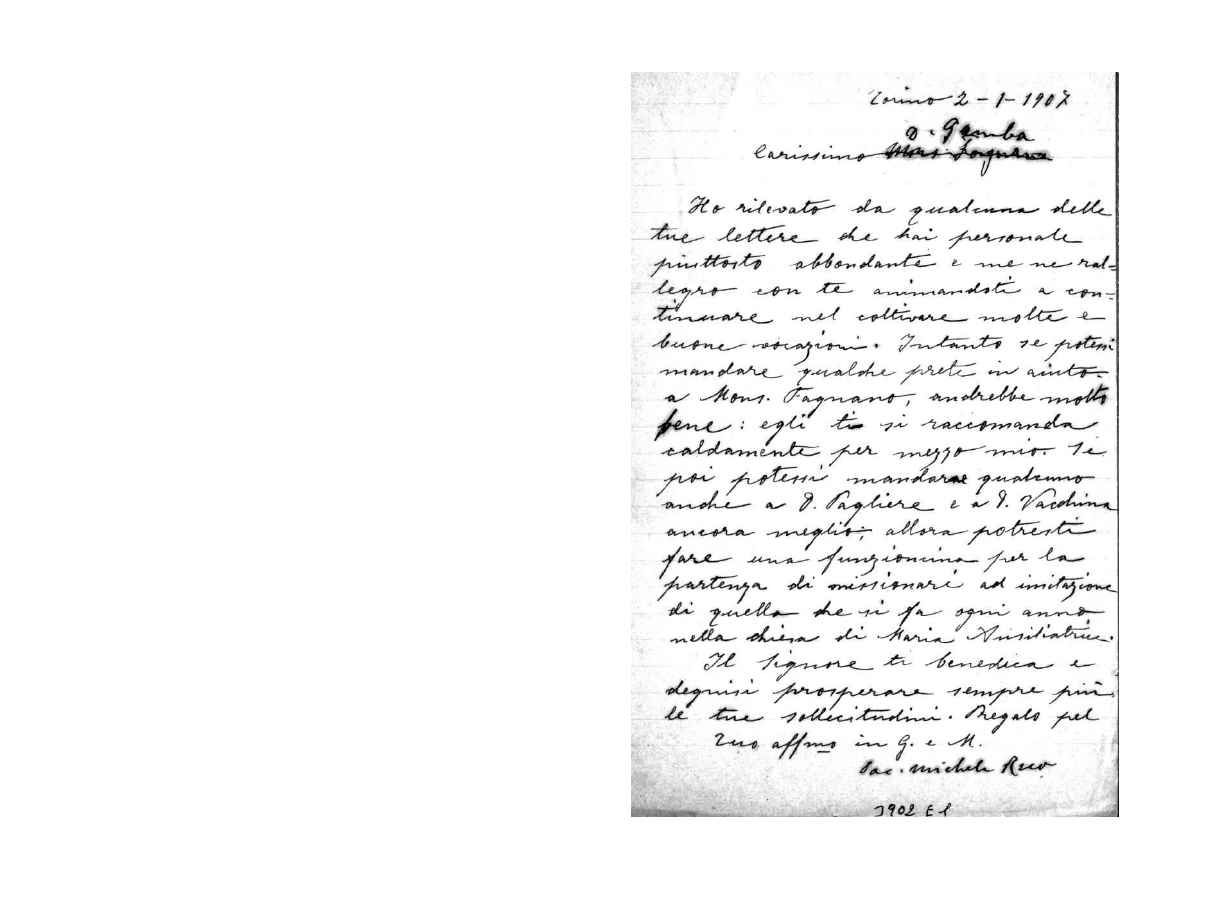 Torino 2 - 1 - 1907
D. Gamba
Carissimo Mons. Fagnano
Ho rilevato da qualcuna delle
tue lettere che hai personale
piuttosto abbondante e me ne ral=
legro con te animandoti a con=
tinuare nel coltivare molte e
buone vocazioni. Intanto se potessi
mandare qualche prete in aiuto
a Mons. Fagnano, andrebbe molto
bene: egli ti si raccomanda
caldamente per mezzo mio. Se
poi potessi mandare qualcuno
anche a D. Pagliere e a D. Vacchina
ancora meglio; allora potresti
fare una funzioncina per la
partenza di missionari ad imitazione
di quella che si fa ogni anno
nella chiesa di Maria Ausiliatrice.
Il Signore ti benedica e
degnisi prosperare sempre più
le tue sollecitudini. Pregalo pel
Tuo affmo in G. e M.
Sac. Michele Rua
3902 E 1